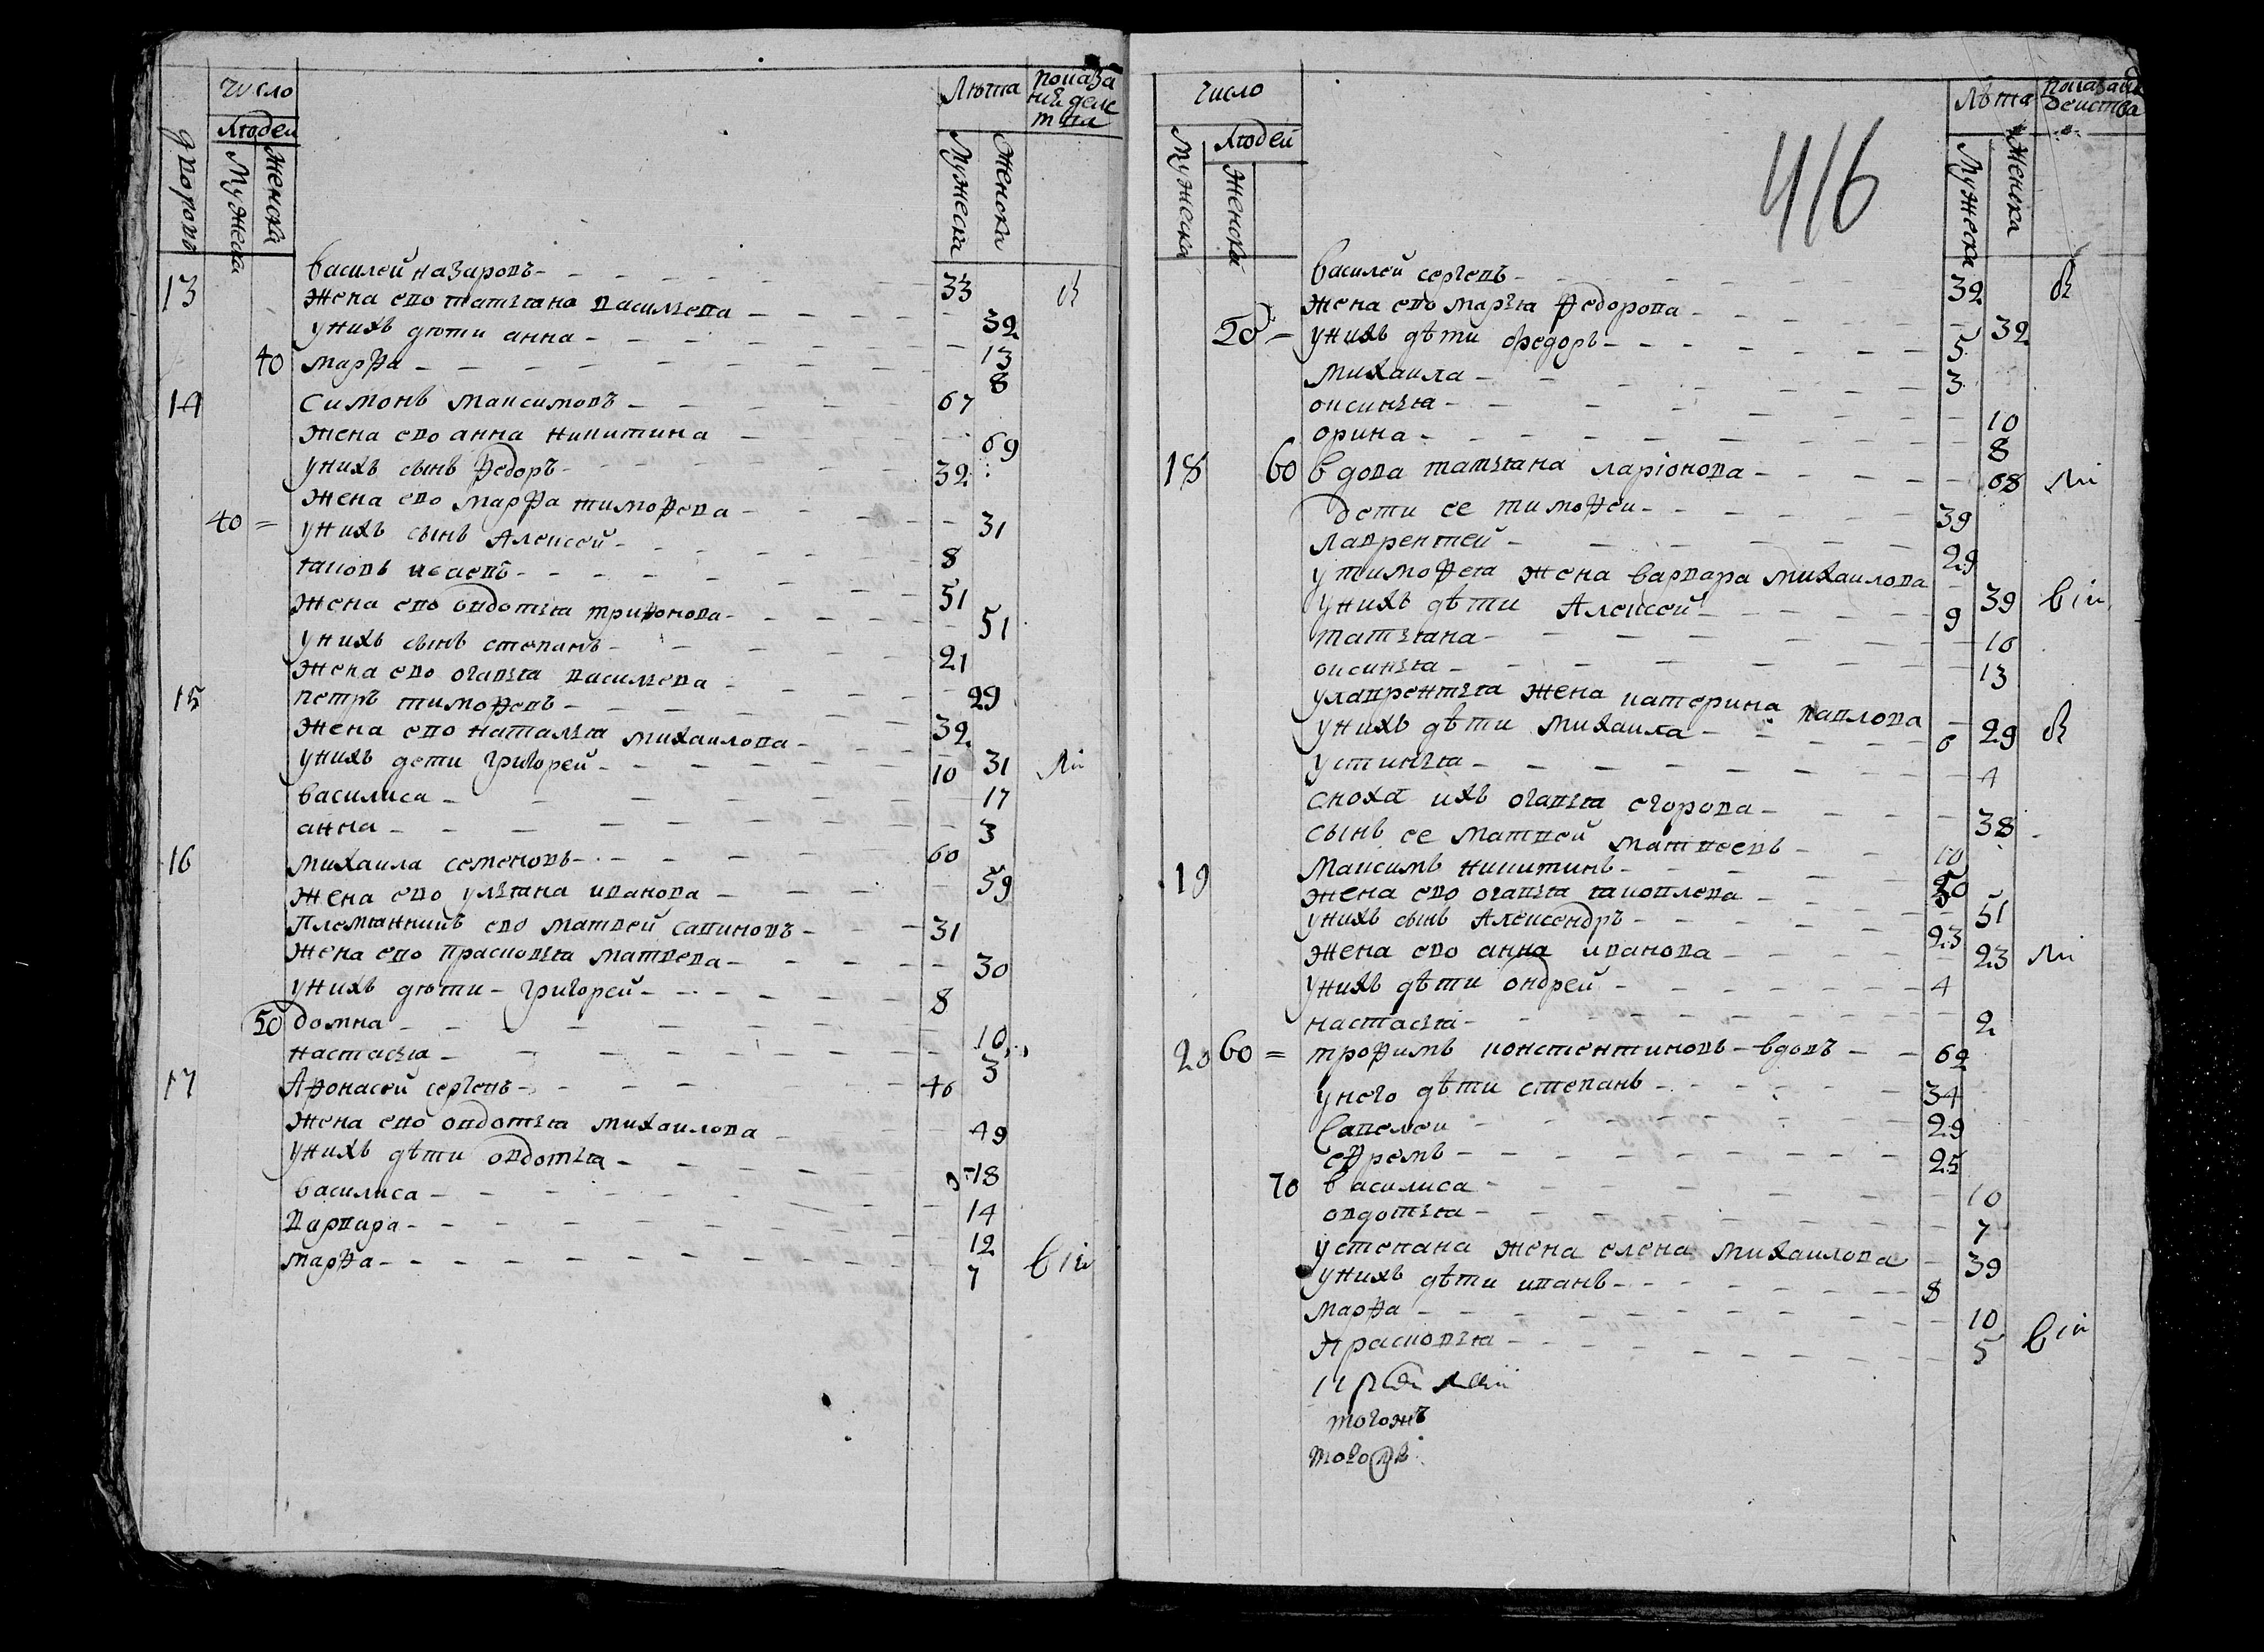 число
Людей
дворовъ
Мужеска
женска
Лѣта
Мужеска
Женска
показа
ние дейс
тва
13 василей назаровъ 33
жена ево татьяна васильева 32
у нихъ дѣти анна 13
40 марфа 8
14 симонъ максимовъ 67
жена ево анна никитина 69
у нихъ сынъ федоръ 32
жена ево марфа тимофева 31
40 = у нихъ сынъ Алексей 8
яковъ исаевъ 51
жена ево овдотья трифонова 51
у нихъ сынъ степанъ 21
жена ево огапья васильева 29
15 петръ тимофевъ 32
жена ево наталья михаилова 31
у нихъ дети григорей 10
василиса 17
анна 3
16 михаила семеновъ 60
жена ево ульяна иванова 59
племянникъ ево матвей савиновъ 31
жена ево прасковья матвева 30
у нихъ дѣти григорей 8
50 домна 10
настасья 3
17 Афонасей сергевъ 46
жена ево овдотья михаилова 49
у нихъ дѣти овдотья 18
василиса 14
варвара 12
марфа 7
число
Людей
Мужеска
Женска
416
Лѣта
Мужеска
Женска
показание
действа
василей сергевъ 32
жена ево марья федорова 32
50 у нихъ дѣти федоръ 5
михаила 3
оксинья 10
орина 8
18 60 вдова татьяна ларiонова 68
дети ее тимофей 39
лаврентей 29
у тимофея жена варвара михаилова 39
у нихъ дѣти Алексей 9
татьяна 16
оксинья 13
у лаврентья жена катерина павлова 29
у нихъ дѣти михаила 6
устинья 4
сноха ихъ огапья егорова 38
сынъ ее матвей матвеевъ 10
19 максимъ никитинъ 50
жена ево огапья яковлева 51
у нихъ сынъ Александръ 23
жена ево анна иванова 23
у нихъ дѣти ондрей 4
настасья 2
20 60 = трофимъ констентиновъ вдовъ 62
у него дѣти степанъ 34
савелеи 29
ефремъ 25
70 василиса 10
овдотья 7
у степана жена елена михаилова 39
у нихъ дѣти иванъ 8
марфа 10
прасковья 5
тогожъ